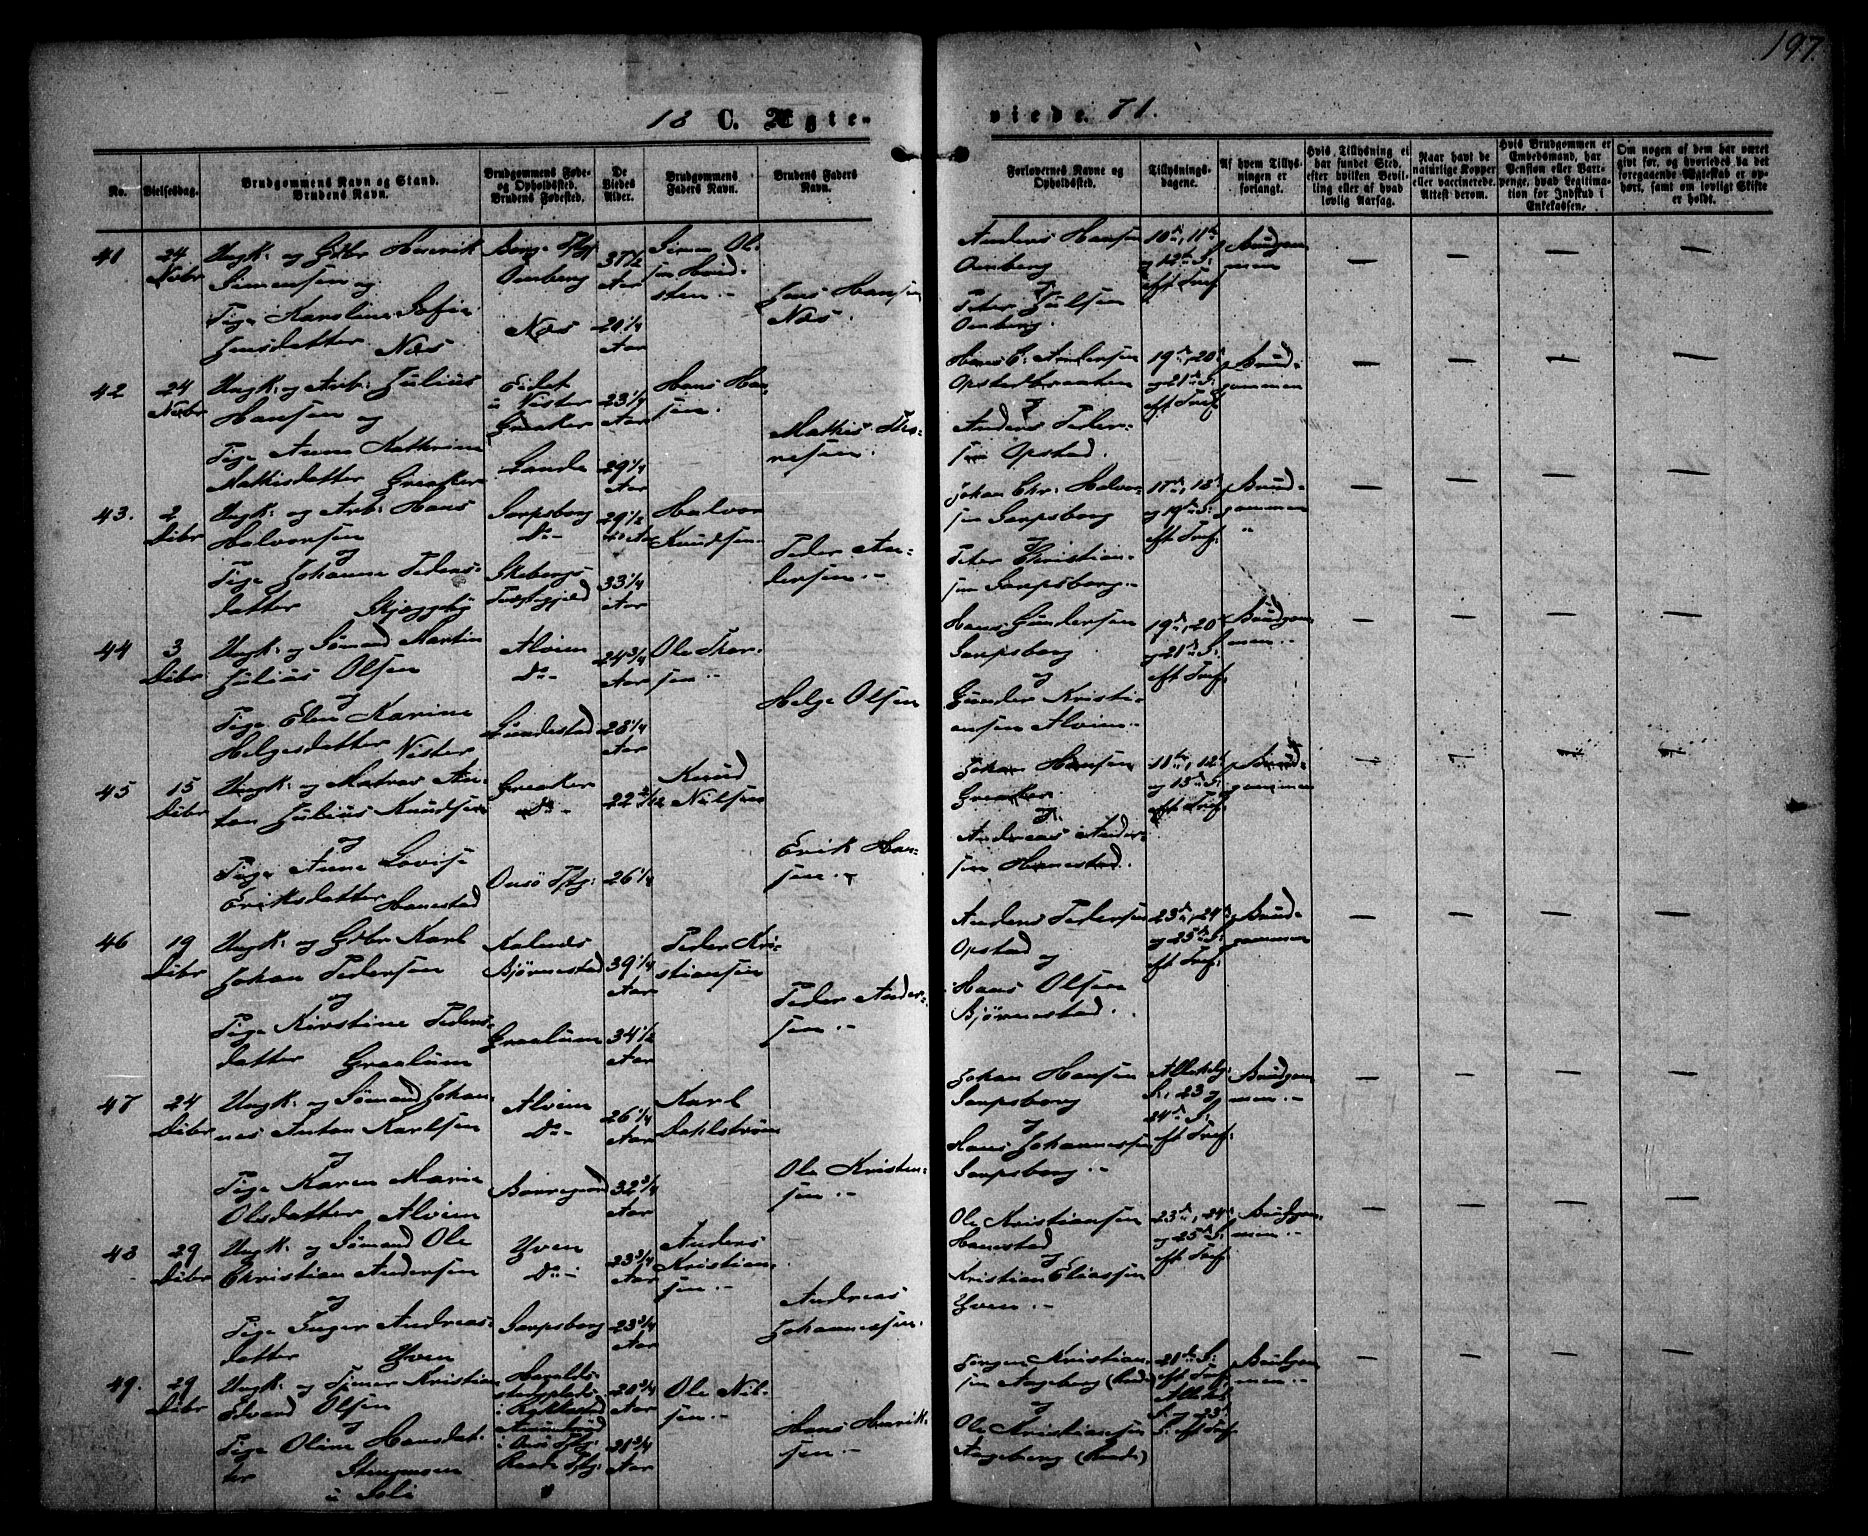 197.
18 C. Ægte-
viede. 71.
No.
Vielsesdag.
Brudgommens Navn og Stand.
Brudens Navn.
Brudgommens Føde-
og Opholdssted.
Brudens Fødested.
De
Viedes
Alder.
Brudgommens
Faders Navn.
Brudens Faders
Navn.
Forlovernes Navne og
Opholdssted.
Tillysnings-
dagene.
Af hvem Tillys-
ningen er
forlangt.
Hvis Tillysning ei
har fundet Sted,
efter hvilken Bevil-
ling eller af hvad
lovlig Aarsag.
Naar havt de
naturlige Kopper
eller vaccinerede.
Attest derom.
Hvis Brudgommen er
Embedsmand, har
Pension eller Var-
penge, hvad Legitima-
tion for Indskud i
Enkekassen.
Om nogen af dem har været
givt før, og hvorledes da det
foregaaende Ægteskab er op-
hørt, samt om lovligt Skifte
er holdt.
41
24
Nvbr
Ungk: og Gbr Henrik
Simensen og
Pige Karoline Sofie
Jensdatter Næs
Borge Pstgj:
Omberg
Næs
37 1/2
Aar
20 1/4
Aar
Simen Ol-
sen Hvid-
sten.
Jens Hansen
Næs.
Anders Hansen
Omberg
og
Peter Julsen
Omberg.
10de, 11te
og 12te S:
eft Tref.
Brudgom-
men
42
24
Nvbr
Ungk: og Arb: Julius
Hansen og
Pige Anne Kathrine
Mathisdatter Greaker
Eidet
u Nister
Greaker
Lande
23 1/4
Aar
29 1/4
Aar
Hans Han-
sen.
Mathis Tho-
resen.
Hans C: Andersen
Opstadbraaten
og
Anders Peder-
sen Opstad.
19de, 20de
og 21de S:
eft Tref.
Brud-
gommen
43.
2
Dcbr
Ungk: og Arb: Hans
Halvorsen
og
Pige Johanne Peders-
datter Skjeggeby
Sarpsborg
Do
Skebergs
Præstegjeld
29 1/2
Aar
33 1/4
Aar
Halvor
Knudsen.
Peder An-
dersen.
Johan Chr: Halvor-
sen Sarpsborg
og
Peter Christian-
sen Sarpsborg.
17de, 18de
og 19de S:
eft Tref.
Brud-
gommen
44
3
Dcbr
Ungk: og Sømand Martin
Julius Olsen
og
Pige Elen Karine
Helgesdatter Nister
Alvim
Do
Gundestad
24 3/4
Aar
28 1/4
Aar
Ole Thor-
sen.
Helge Olsen
Hans Gundersen
Sarpsborg
og
Gunder Kristi-
ansen Alvim.
19de, 20
og 21de S:
eft Tref.
Brudgom-
men.
45
15
Dcbr
Ungk: og Matros An-
ton Julius Knudsen
og
Pige Anne Lovise
Eriksdatter Hanestad
Greaker
Do
Onsø Pstgj:
22 2/12
26 1/4
Knud
Nilsen
Erik Han-
sen.
Johan Hansen
Greaker.
og
Andreas Ander-
sen Hanestad.
11te, 12te
og 13de S:
eft Tref.
Brud-
gommen
46
19
Dcbr
Ungk: og Gbr Karl
Johan Pedersen
og
Pige Kirstine Peders-
datter Graalum
Kalnæs
Bjørnestad
Graalum
39 1/4
Aar
34 1/2
Aar
Peder Kri-
stiansen
Peder Ander-
sen.
Anders Pedersen
Opstad
og
Hans Olsen
Bjørnestad.
23de, 24de
og 25de S:
eft Tref.
Brud-
gommen
47
24
Dcbr
Ungk: og Sømand Johan-
nes Anton Karlsen
og
Pige Karen Marie
Olsdatter Alvim
Alvim
Do
Borregaard
26 1/4
Aar
32 3/4
Aar
Karl
Dahlstrøm
Ole Kristen-
sen.
Johan Hansen
Sarpsborg
og
Hans Johannessen
Sarpsborg.
Allehelg:
S: 23 og
24de S:
eft Tref:
Brudgom-
men.
48
29
Dcbr
Ungk: og Sømand Ole
Christian Andersen
og
Pige Inger Andreas-
datter Yven
Yven
Do
Sarpsborg
23 3/4
Aar
23 3/4
Aar
Anders
Kristian-
sen.
Andreas
Johannessen.
Ole Kristiansen
Hanestad
og
Kristian Eliassen
Yven.
23de, 24de
og 25de S:
eft Tref.
Brudgom-
men.
49.
29
Dcbr
Ungk: og Kristian
Edvard Olsen
og
Pige Oline Hansdat-
ter
u Soli
i Onsø Pstgj:
Raade Pstgj:
20 3/4
Aar
21 3/4
Aar
Ole Nil-
sen.
Hans Henrik-
sen.
Jørgen Kristian-
sen Augeberg (Raade)
og
Ole Kristiansen
Augeberg (Raade)
21de S:
eft Tref.
Allehel.
S: og 23de
S: eft Tref.
Brudgom-
men.